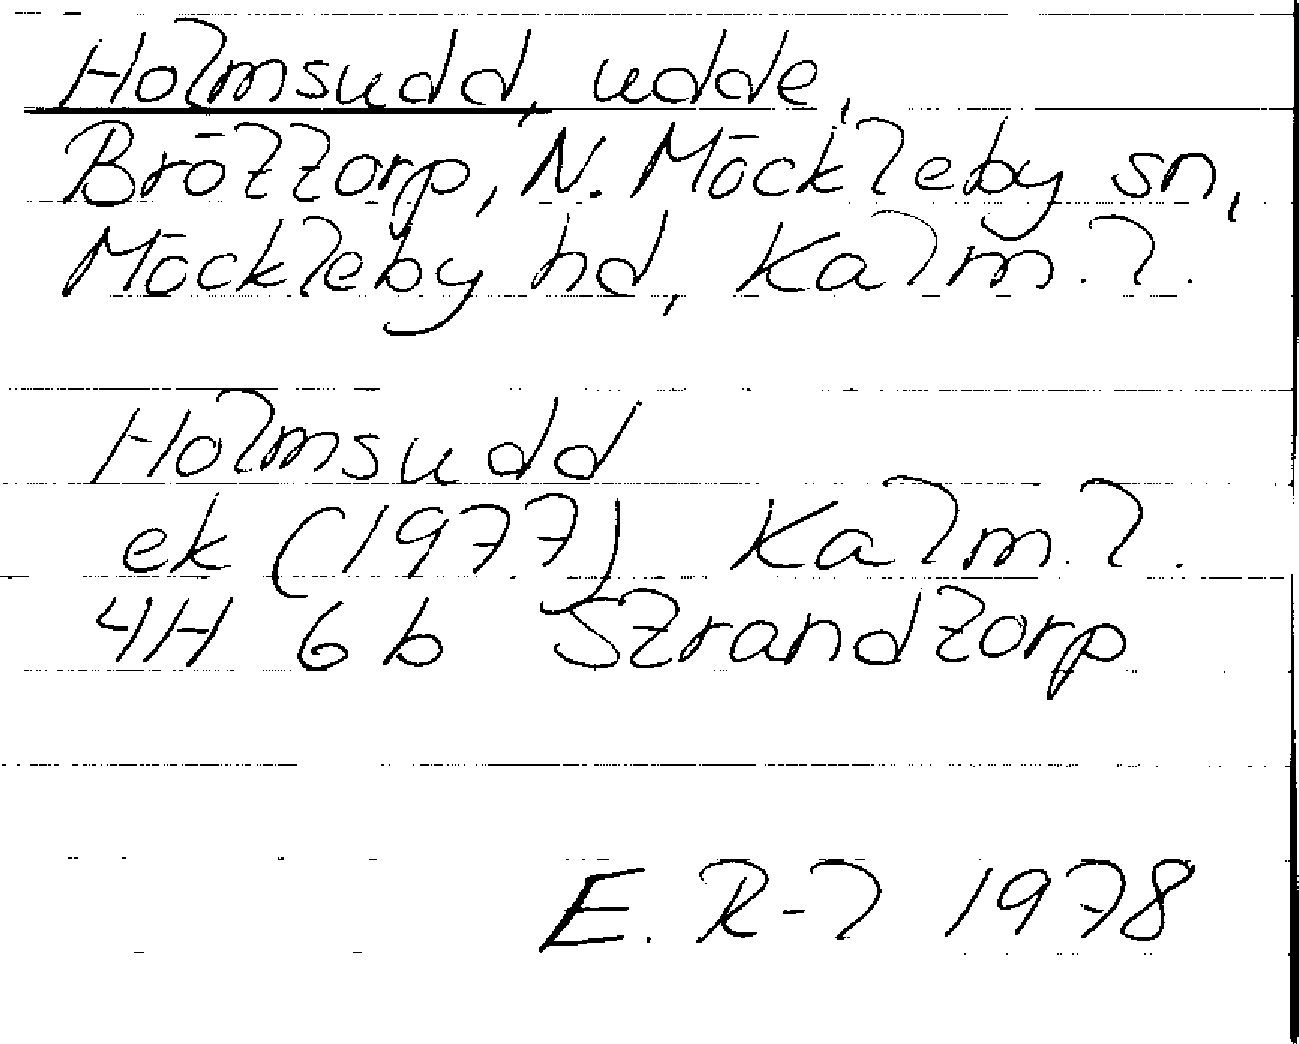 Holmsudd, udde,
Bröttorp, N. Möckleby sn,
Möckleby hd, Kalm. l.
Holmsudd
ek (1977) Kalm. l.
4H 6b Strandtorp
E. R-l 1978